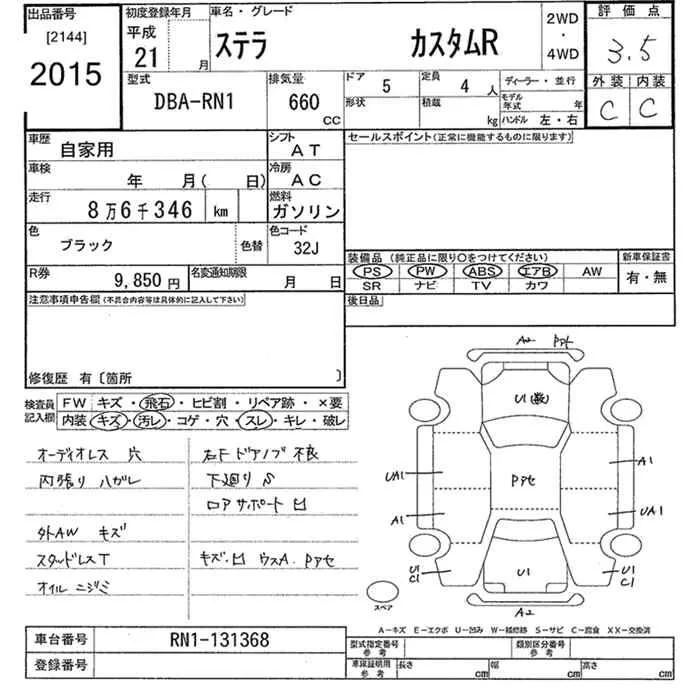 出品番号 初度登録年月 車名・グレード 2WD・4WD 評価点
[2144] 平成 3.5
2015 21 月 ステラ カスタムR 外装 内装
型式 排気量 ドア 5 定員 4 人 ディーラー・並行 C C
DBA-RN1 660 CC 形状 積載 kg モデル年式 年 ハンドル 左・右
車歴 自家用 シフト AT セールスポイント(正常に機能するものに限ります)
車検 年 月( 日) 冷房 AC
走行 8万6千346 km 燃料 ガソリン
色 ブラック 色替 色コード 32J
装備品(純正品に限り〇をつけてください) 新車保証書
R券 9,850円 名変通知期限 月 日 PS PW ABS エアB AW 有・無
SR ナビ TV カワ
注意事項申告欄(不具合内容等は具体的に記入して下さい) 後日品
修復歴 有〔箇所 〕
検査員記入欄 FW キズ・飛石・ヒビ割・リペア跡・×要
内装 キズ・汚レ・コゲ・穴・スレ・キレ・破レ
オーディオレス 穴 右F ドアノブ 不良
内張り ハガレ 下廻り S
ロアサポート 凹
外AW キズ
スタッドレスT キズ・凹 ウスA. Pアセ
オイル ニジミ
A2 Pアセ
U1(数)
UA1 Pアセ A1
A1 UA1
U1 C1 U1 U1 C1
スペア A2
A-キズ E-エクボ U-凹み W-補修跡 S-サビ C-腐食 XX-交換済
車台番号 RN1-131368 型式指定番号 参考 類別区分番号 参考
登録番号 車庫証明用 参考 長さ cm 幅 cm 高さ cm